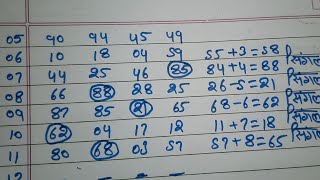 05 90 94 45 49
06 10 18 04 59 55+3=58 सिंगल
07 44 25 46 85 84+4=88 सिंगल
08 66 88 28 25 26-5=21 सिंगल
09 87 85 21 65 68-6=62 सिंगल
10 62 04 17 12 11+7=18 सिंगल
11 80 68 03 57 57+8=65 सिंगल